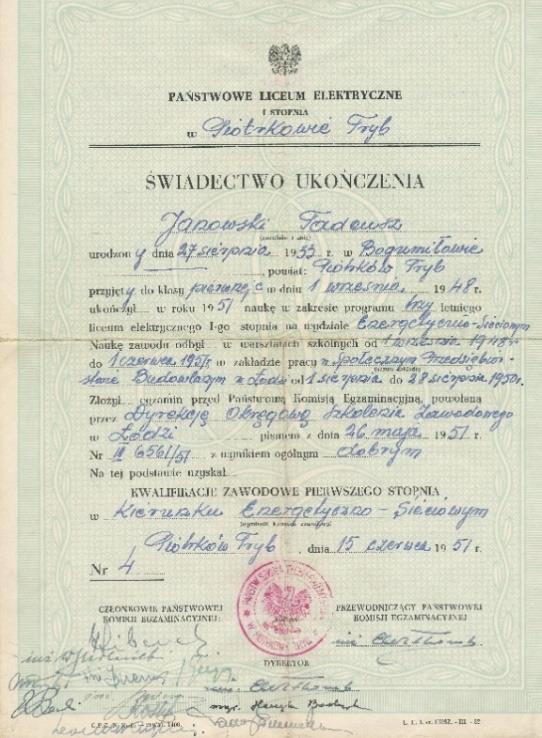 PAŃSTWOWE LICEUM ELEKTRYCZNE
I STOPNIA
w Piotrkowie Tryb
ŚWIADECTWO UKOŃCZENIA
Janowski Tadeusz
urodzony dnia 27 sierpnia 1933 r. w Bogumiłowie
, powiat: Piotrków Tryb
przyjęty do klasy pierwszej w dniu 1 września 1948 r.
ukończył w roku 1951 naukę w zakresie programu trzy letniego
liceum elektrycznego I-go stopnia na wydziale Energetyczno-Sieciowym
Naukę zawodu odbył w warsztatach szkolnych od 1 września 1948 r
do 1 czerwca 1951 r. w zakładzie pracy w Społecznym Przedsiębior-
stwie Budowlanym w Łodzi od 1 sierpnia do 28 sierpnia 1950 r.
Złożył egzamin przed Państwową Komisją Egzaminacyjną, powołaną
przez Dyrekcję Okręgową Szkolenia Zawodowego
w Łodzi pismem z dnia 26 maja 1951 r.
Nr III 6561/51 z wynikiem ogólnym dobrym
Na tej podstawie uzyskał
KWALIFIKACJE ZAWODOWE PIERWSZEGO STOPNIA
w Kierunku Energetyczno-Sieciowym
Piotrków Tryb, dnia 15 czerwca 1951 r.
Nr 4
CZŁONKOWIE PAŃSTWOWEJ
KOMISJI EGZAMINACYJNEJ:
PRZEWODNICZĄCY PAŃSTWOWEJ
KOMISJI EGZAMINACYJNEJ
DYREKTOR